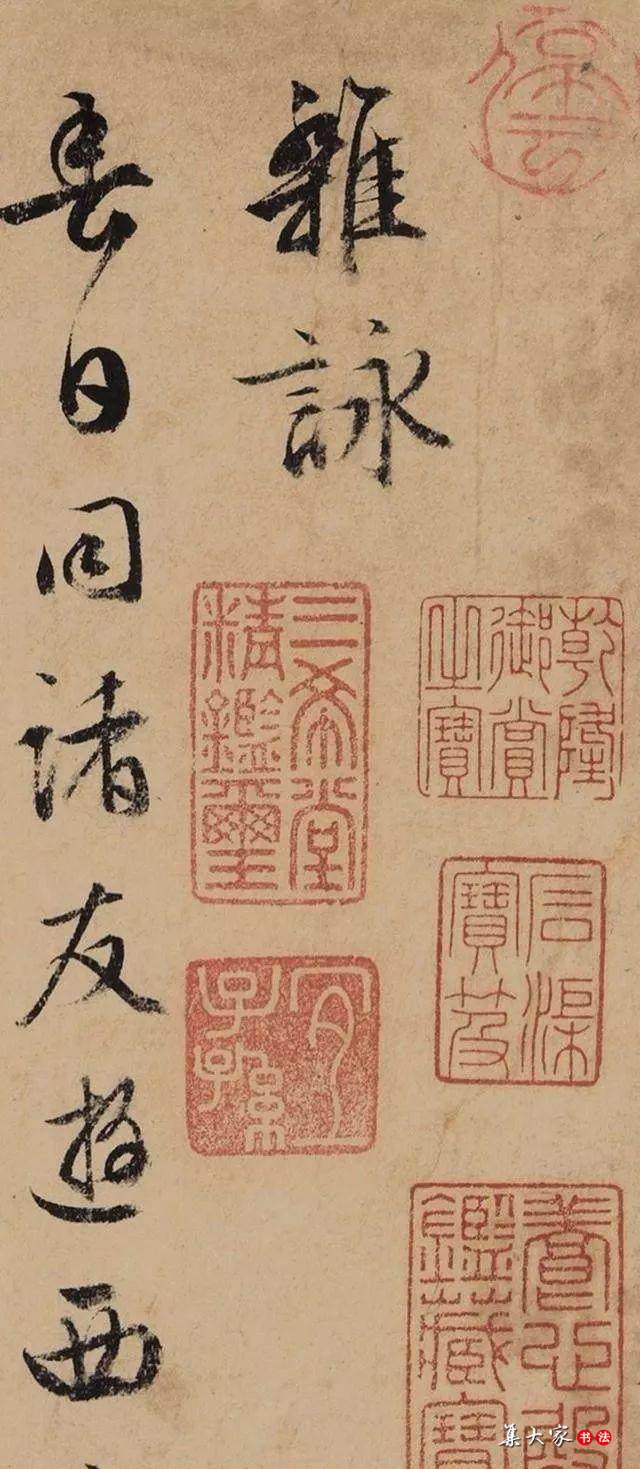 乾隆御賞之寶
石渠寶笈
養心殿鑑藏寶
雜詠
三希堂精鑑璽
宜子孫
春日同諸友遊西
集大家书法